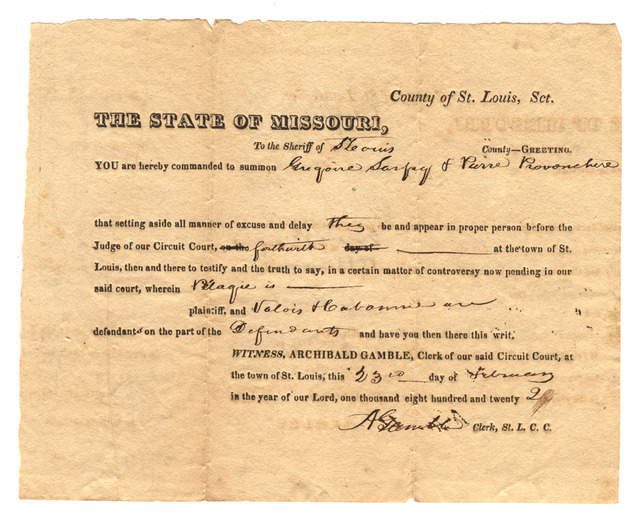 County of St. Louis, Sct.
THE STATE OF MISSOURI,
To the Sheriff of St Louis County—GREETING.
YOU are hereby commanded to summon Gregoire Sarpy & Pierre Provenchere
that setting aside all manner of excuse and delay they be and appear in proper person before the
Judge of our Circuit Court, on the forthwith day of at the town of St.
Louis, then and there to testify and the truth to say, in a certain matter of controversy now pending in our
said court, wherein Pelagie is
plaintiff, and Valois & Cabanne are
defendants on the part of the Defendants and have you then there this writ.
WITNESS, ARCHIBALD GAMBLE, Clerk of our said Circuit Court, at
the town of St. Louis, this 23rd day of February
in the year of our Lord, one thousand eight hundred and twenty
A Gamble Clerk, St. L. C. C.